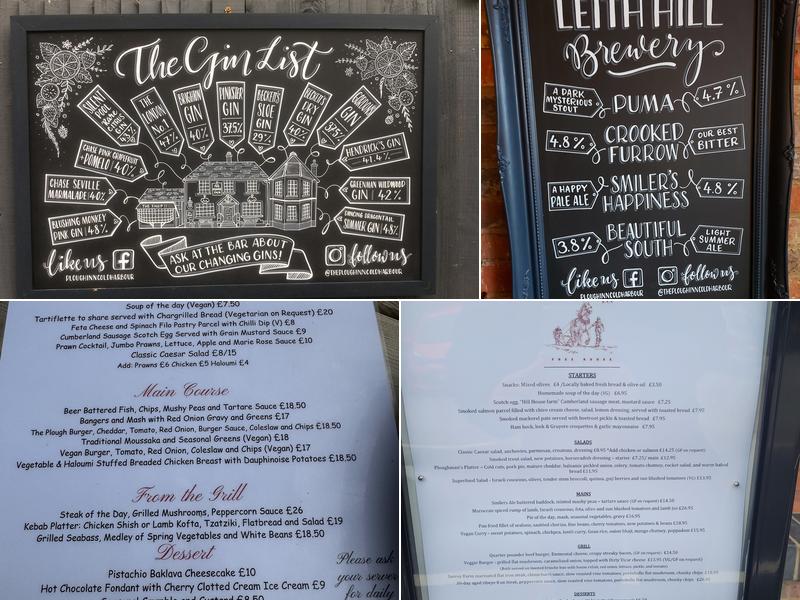 The Gin List
SILENT POOL RARE CITRUS GIN 43%
THE LONDON No1 47%
BRIGHTON GIN 40%
PINKSTER GIN 37.5%
BECKETT'S SLOE GIN 29%
BECKETT'S DRY GIN 40%
GORDON'S GIN 37.5%
CHASE PINK GRAPEFRUIT + POMELO | 40%
HENDRICK'S GIN 41.4%
CHASE SEVILLE MARMALADE | 40%
GREENMAN WILDWOOD GIN | 42%
BLUSHING MONKEY PINK GIN | 48%
DANCING DRAGONTAIL SUMMER GIN | 48%
ASK AT THE BAR ABOUT
OUR CHANGING GINS!
like us
PLOUGHINNCOLDHARBOUR
follow us
@THEPLOUGHINNCOLDHARBOUR
LEITH HILL
Brewery
A DARK MYSTERIOUS STOUT PUMA 4.7%
4.8% CROOKED FURROW OUR BEST BITTER
A HAPPY PALE ALE SMILER'S HAPPINESS 4.8%
3.8% BEAUTIFUL SOUTH LIGHT SUMMER ALE
like us follow us
PLOUGHINNCOLDHARBOUR @THEPLOUGHINNCOLDHARBOUR
Soup of the day (Vegan) £7.50
Tartiflette to share served with Chargrilled Bread (Vegetarian on Request) £20
Feta Cheese and Spinach Filo Pastry Parcel with Chilli Dip (V) £8
Cumberland Sausage Scotch Egg Served with Grain Mustard Sauce £9
Prawn Cocktail, Jumbo Prawns, Lettuce, Apple and Marie Rose Sauce £10
Classic Caesar Salad £8/15
Add: Prawns £6 Chicken £5 Haloumi £4
Main Course
Beer Battered Fish, Chips, Mushy Peas and Tartare Sauce £18.50
Bangers and Mash with Red Onion Gravy and Greens £17
The Plough Burger, Cheddar, Tomato, Red Onion, Burger Sauce, Coleslaw and Chips £18.50
Traditional Moussaka and Seasonal Greens (Vegan) £18
Vegan Burger, Tomato, Red Onion, Coleslaw and Chips (Vegan) £17
Vegetable & Haloumi Stuffed Breaded Chicken Breast with Dauphinoise Potatoes £18.50
From the Grill
Steak of the Day, Grilled Mushrooms, Peppercorn Sauce £26
Kebab Platter: Chicken Shish or Lamb Kofta, Tzatziki, Flatbread and Salad £19
Grilled Seabass, Medley of Spring Vegetables and White Beans £18.50
Dessert
Pistachio Baklava Cheesecake £10
Hot Chocolate Fondant with Cherry Clotted Cream Ice Cream £9
Crumble and Custard £8.50
Please ask
your server
for daily
FREE HOUSE
STARTERS
Snacks: Mixed olives £4 /Locally baked fresh bread & olive oil £3.50
Homemade soup of the day (VG) £6.95
Scotch egg, "Hill House farm" Cumberland sausage meat, mustard sauce £7.25
Smoked salmon parcel filled with chive cream cheese, salad, lemon dressing, served with toasted bread £7.95
Smoked mackerel pate served with beetroot pickle & toasted bread £7.95
Ham hock, leek & Gruyere croquettes & garlic mayonnaise £7.95
SALADS
Classic Caesar salad, anchovies, parmesan, croutons, dressing £8.95 *Add chicken or salmon £14.25 (GF on request)
Smoked trout salad, new potatoes, horseradish dressing - starter £7.25/ main £12.95
Ploughman's Platter - Cold cuts, pork pie, mature cheddar, balsamic pickled onion, celery, tomato chutney, rocket salad, and warm baked
bread £13.95
Superfood Salad - Israeli couscous, olives, tender stem broccoli, quinoa, goji berries and sun blushed tomatoes (VG) £13.95
MAINS
Smilers Ale battered haddock, minted mushy peas - tartare sauce (GF on request) £14.50
Moroccan spiced rump of lamb, Israeli couscous, feta, olive and sun blushed tomatoes and lamb jus £26.95
Pie of the day, mash, seasonal vegetables, gravy £16.95
Pan Fried fillet of seabass, sautéed chorizo, fine beans, cherry tomatoes, new potatoes & beans £18.95
Vegan Curry - sweet potatoes, spinach, chickpea, lentil curry,
GRILL
Quarter pounder beef burger, Emmental cheese, crispy streaky bacon, (GF on request) £14.50
Veggie Burger - grilled flat mushroom, caramelised onion, topped with Dirty Vicar cheese £13.95 (VG/GF on request)
DESSERTS